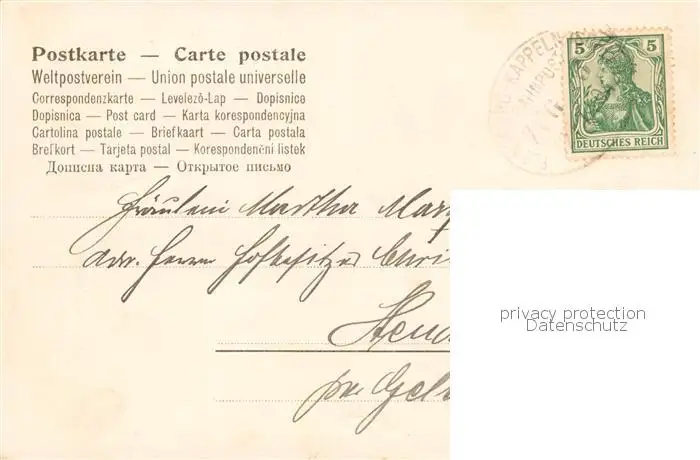 Postkarte — Carte postale
Weltpostverein — Union postale universelle
Correspondenzkarte — Levelező-Lap — Dopisnice
Dopisnica — Post card — Karta korespondencyjna
Cartolina postale — Briefkaart — Carta postala
Brefkort — Tarjeta postal — Korespondenční listek
Дописна карта — Открытое письмо
KAPPELN
5 5
DEUTSCHES REICH
Fräulein Martha Mar
Adr. Herrn Hofbesitzer Chri
pr. Gel
privacy protection
Datenschutz